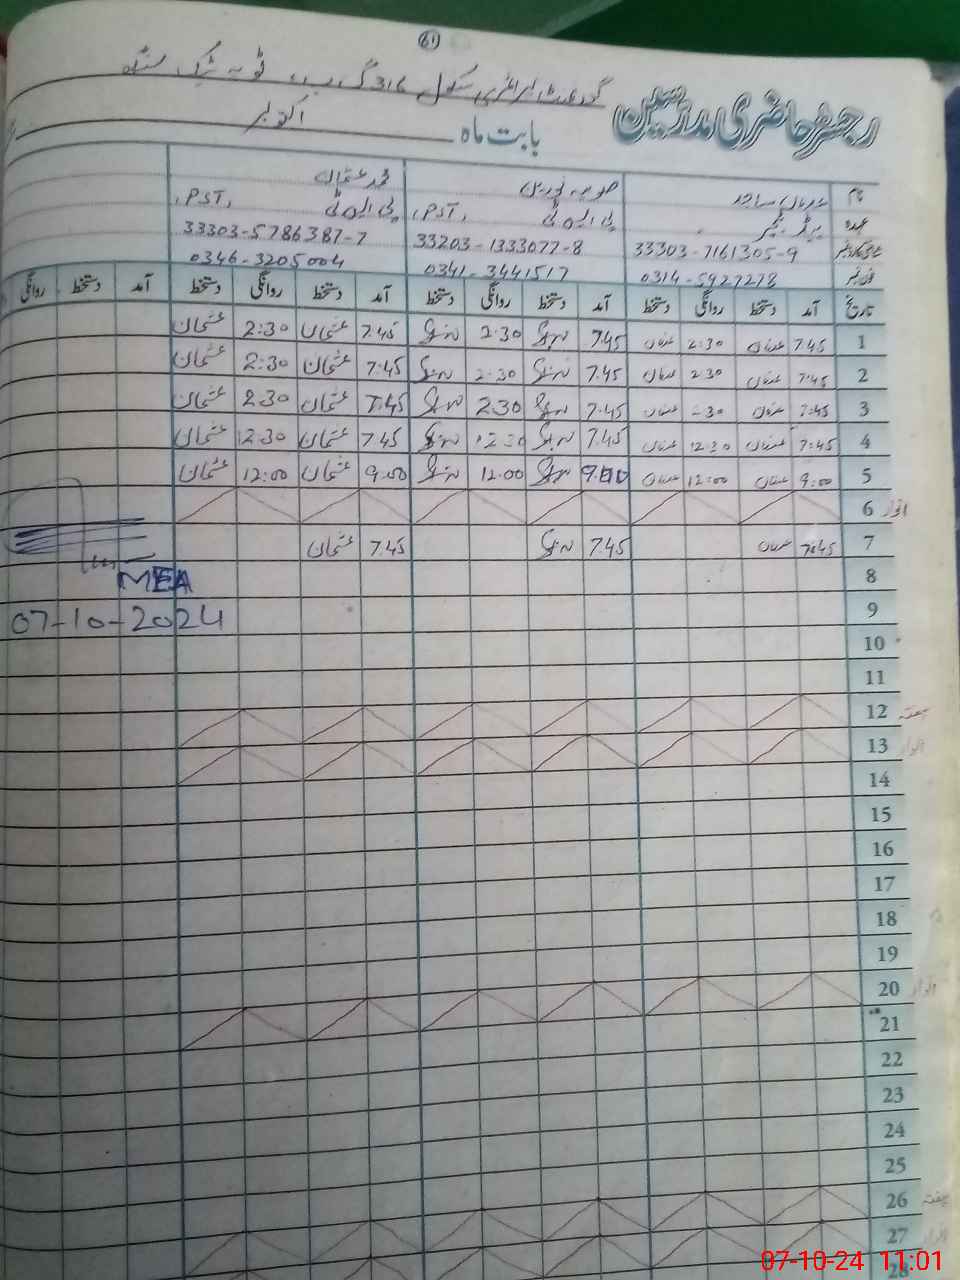 61
گورنمنٹ ایلیمنٹری سکول 316 گ ب، ٹوبہ ٹیک سنگھ
رجسٹر حاضری مدرسین
بابت ماہ اکتوبر
نام عدنان ساجد صوبیہ نورین محمد عثمان
عہدہ ہیڈ ٹیچر پی ایس ٹی (PST) پی ایس ٹی (PST)
33303-7161305-9 33203-1333077-8 33303-5786387-7
فون نمبر 0314-5927278 0341-3441517 0346-3205004
تاریخ آمد دستخط روانگی دستخط آمد دستخط روانگی دستخط آمد دستخط روانگی دستخط آمد دستخط روانگی
1 7.45 عدنان 2:30 عدنان 7.45 2.30 7.45 عثمان 2:30 عثمان
2 7:45 عدنان 2:30 عدنان 7.45 2.30 7:45 عثمان 2:30 عثمان
3 7:45 عدنان 2:30 عدنان 7.45 2.30 7.45 عثمان 2.30 عثمان
4 7:45 عدنان 12:30 عدنان 7.45 12.30 7.45 عثمان 12:30 عثمان
5 9:00 عدنان 12:00 عدنان 9.00 12.00 9.00 عثمان 12:00 عثمان
6 اتوار
7 7:45 عدنان 7.45 7.45 عثمان
8
MEA
9
07-10-2024
10
11
12 ہفتہ
13 اتوار
14
15
16
17
18
19
20 اتوار
21
22
23
24
25
26 ہفتہ
27 اتوار
28
07-10-24 11:01